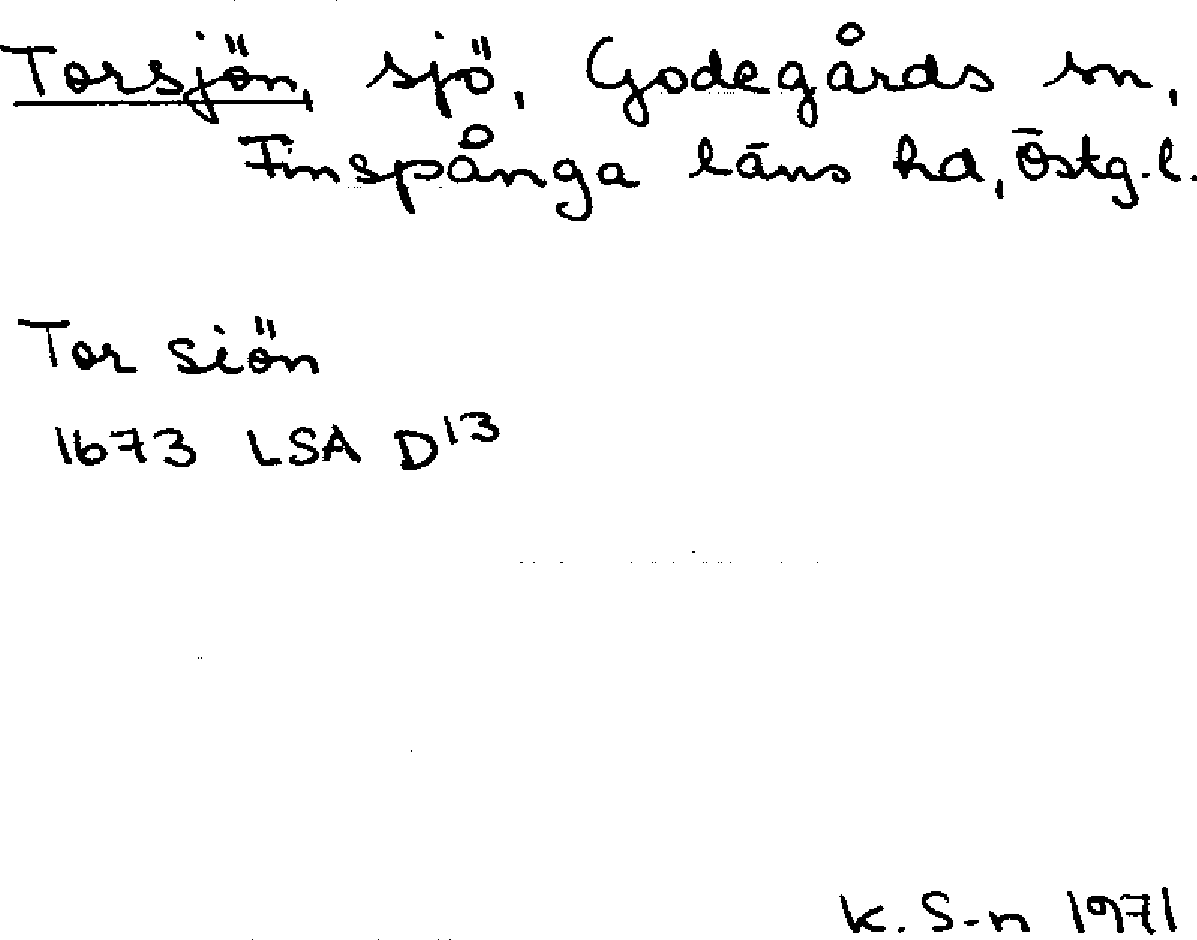 Torsjön, sjö, Godegårds sn,
Finspånga läns hd, Östg.l.
Tor siön
1673 LSA D13
K. S-n 1971